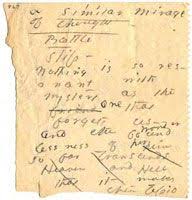 a similar mirage
of thought
Prattle
still -
Nothing is so res-
onant with
mystery as the
one that
forgets
and the
less ness of
so far transcends
Heaven and Hell
that it makes
them tepid